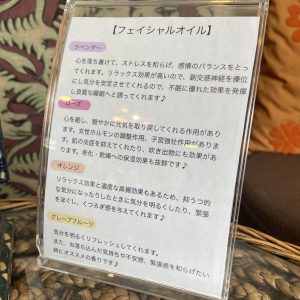 【フェイシャルオイル】
ラベンダー
心を落ち着けて、ストレスを和らげ、感情のバランスをとっ
てくれます。リラックス効果が高いので、副交感神経を優位
にし気分を安定させてくれるので、不眠に優れた効果を発揮
し良質な睡眠へと誘ってくれます♪
ローズ
心を癒し、穏やかに元気を取り戻してくれる作用があり
ます。女性ホルモンの調整作用、子宮強壮作用がありま
す。肌の炎症を抑えてくれたり、吹き出物にも効果があ
ります。老化・乾燥への保湿効果も抜群です♪
オレンジ
リラックス効果と適度な高揚効果もあるため、抑うつ的
な気分になったりしたときに気分を明るくしたり、緊張
をほぐし、くつろぎ感を与えてくれます♪
グレープフルーツ
気分を明るくリフレッシュしてくれます。
また、お落ち込んだ気持ちや不安感、緊張感を和らげたい
時にオススメの香りです♪